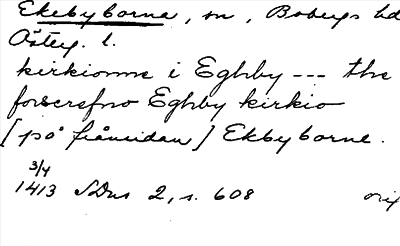 Ekebyborna, sn, Bobergs hd
Östey. l.
kirkionne i Eghby --- the
forscrefno Eghby kirkio
[på frånsidan] Ekbyborne.
3/4
1413 SDns 2, s. 608 orig